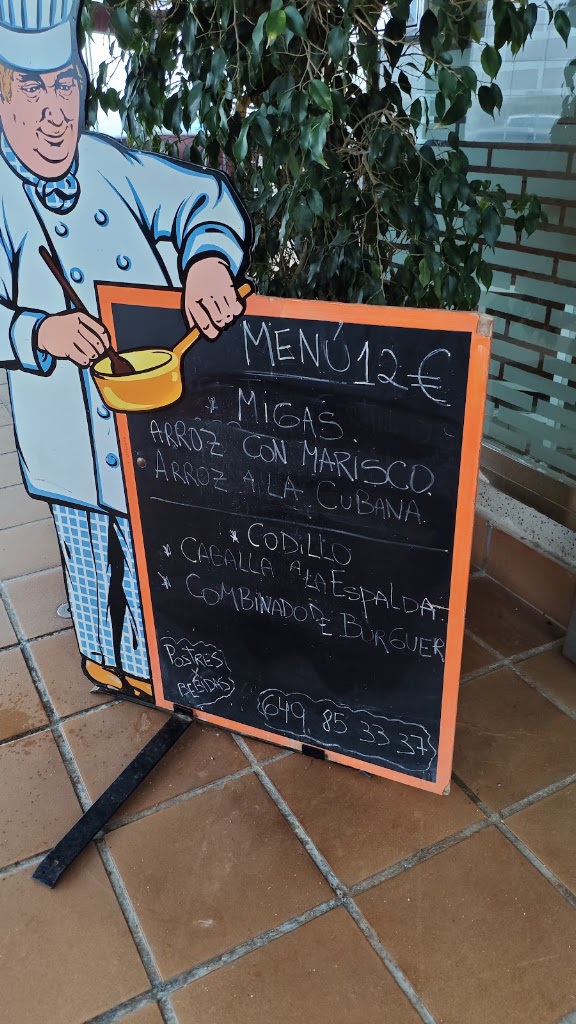 MENÚ 12 €
* MIGAS.
ARROZ CON MARISCO.
ARROZ A LA CUBANA.
* CODILLO
* CABALLA A LA ESPALDA
* COMBINADO DE BURGUER
POSTRES
Y
BEBIDAS
649 85 33 37